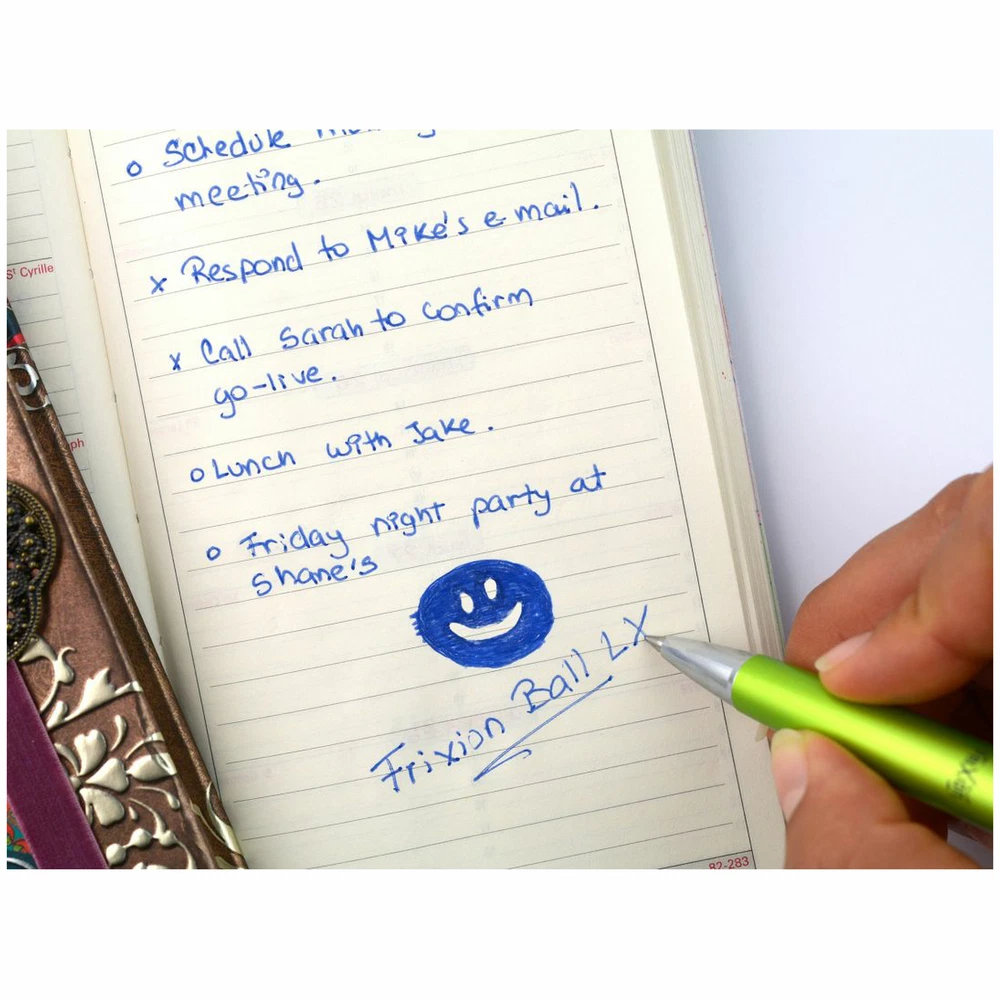 o Schedule
meeting.
x Respond to Mike's e-mail.
x Call Sarah to confirm
go-live.
o Lunch with Jake.
o Friday night party at
Shane's
Frixion Ball LX
St Cyrille
ph
82-283